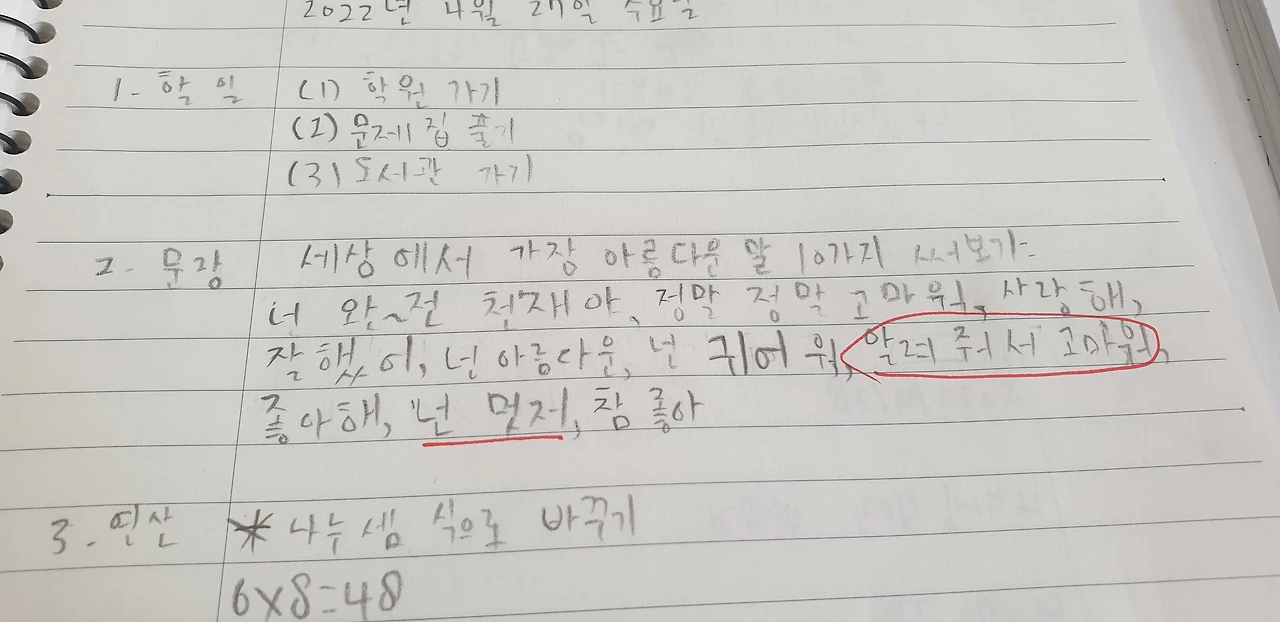 2022년 4월 27일 수요일
1. 할 일 (1) 학원 가기
(2) 문제집 풀기
(3) 도서관 가기
2. 문장 세상에서 가장 아름다운 말 10가지 써보기.
너 완~전 천재야, 정말 정말 고마워, 사랑해,
잘했어, 넌 아름다운, 넌 귀여워, 알려 줘서 고마워,
좋아해, 넌 멋저, 참 좋아
3. 연산 * 나누셈 식으로 바꾸기
6×8=48